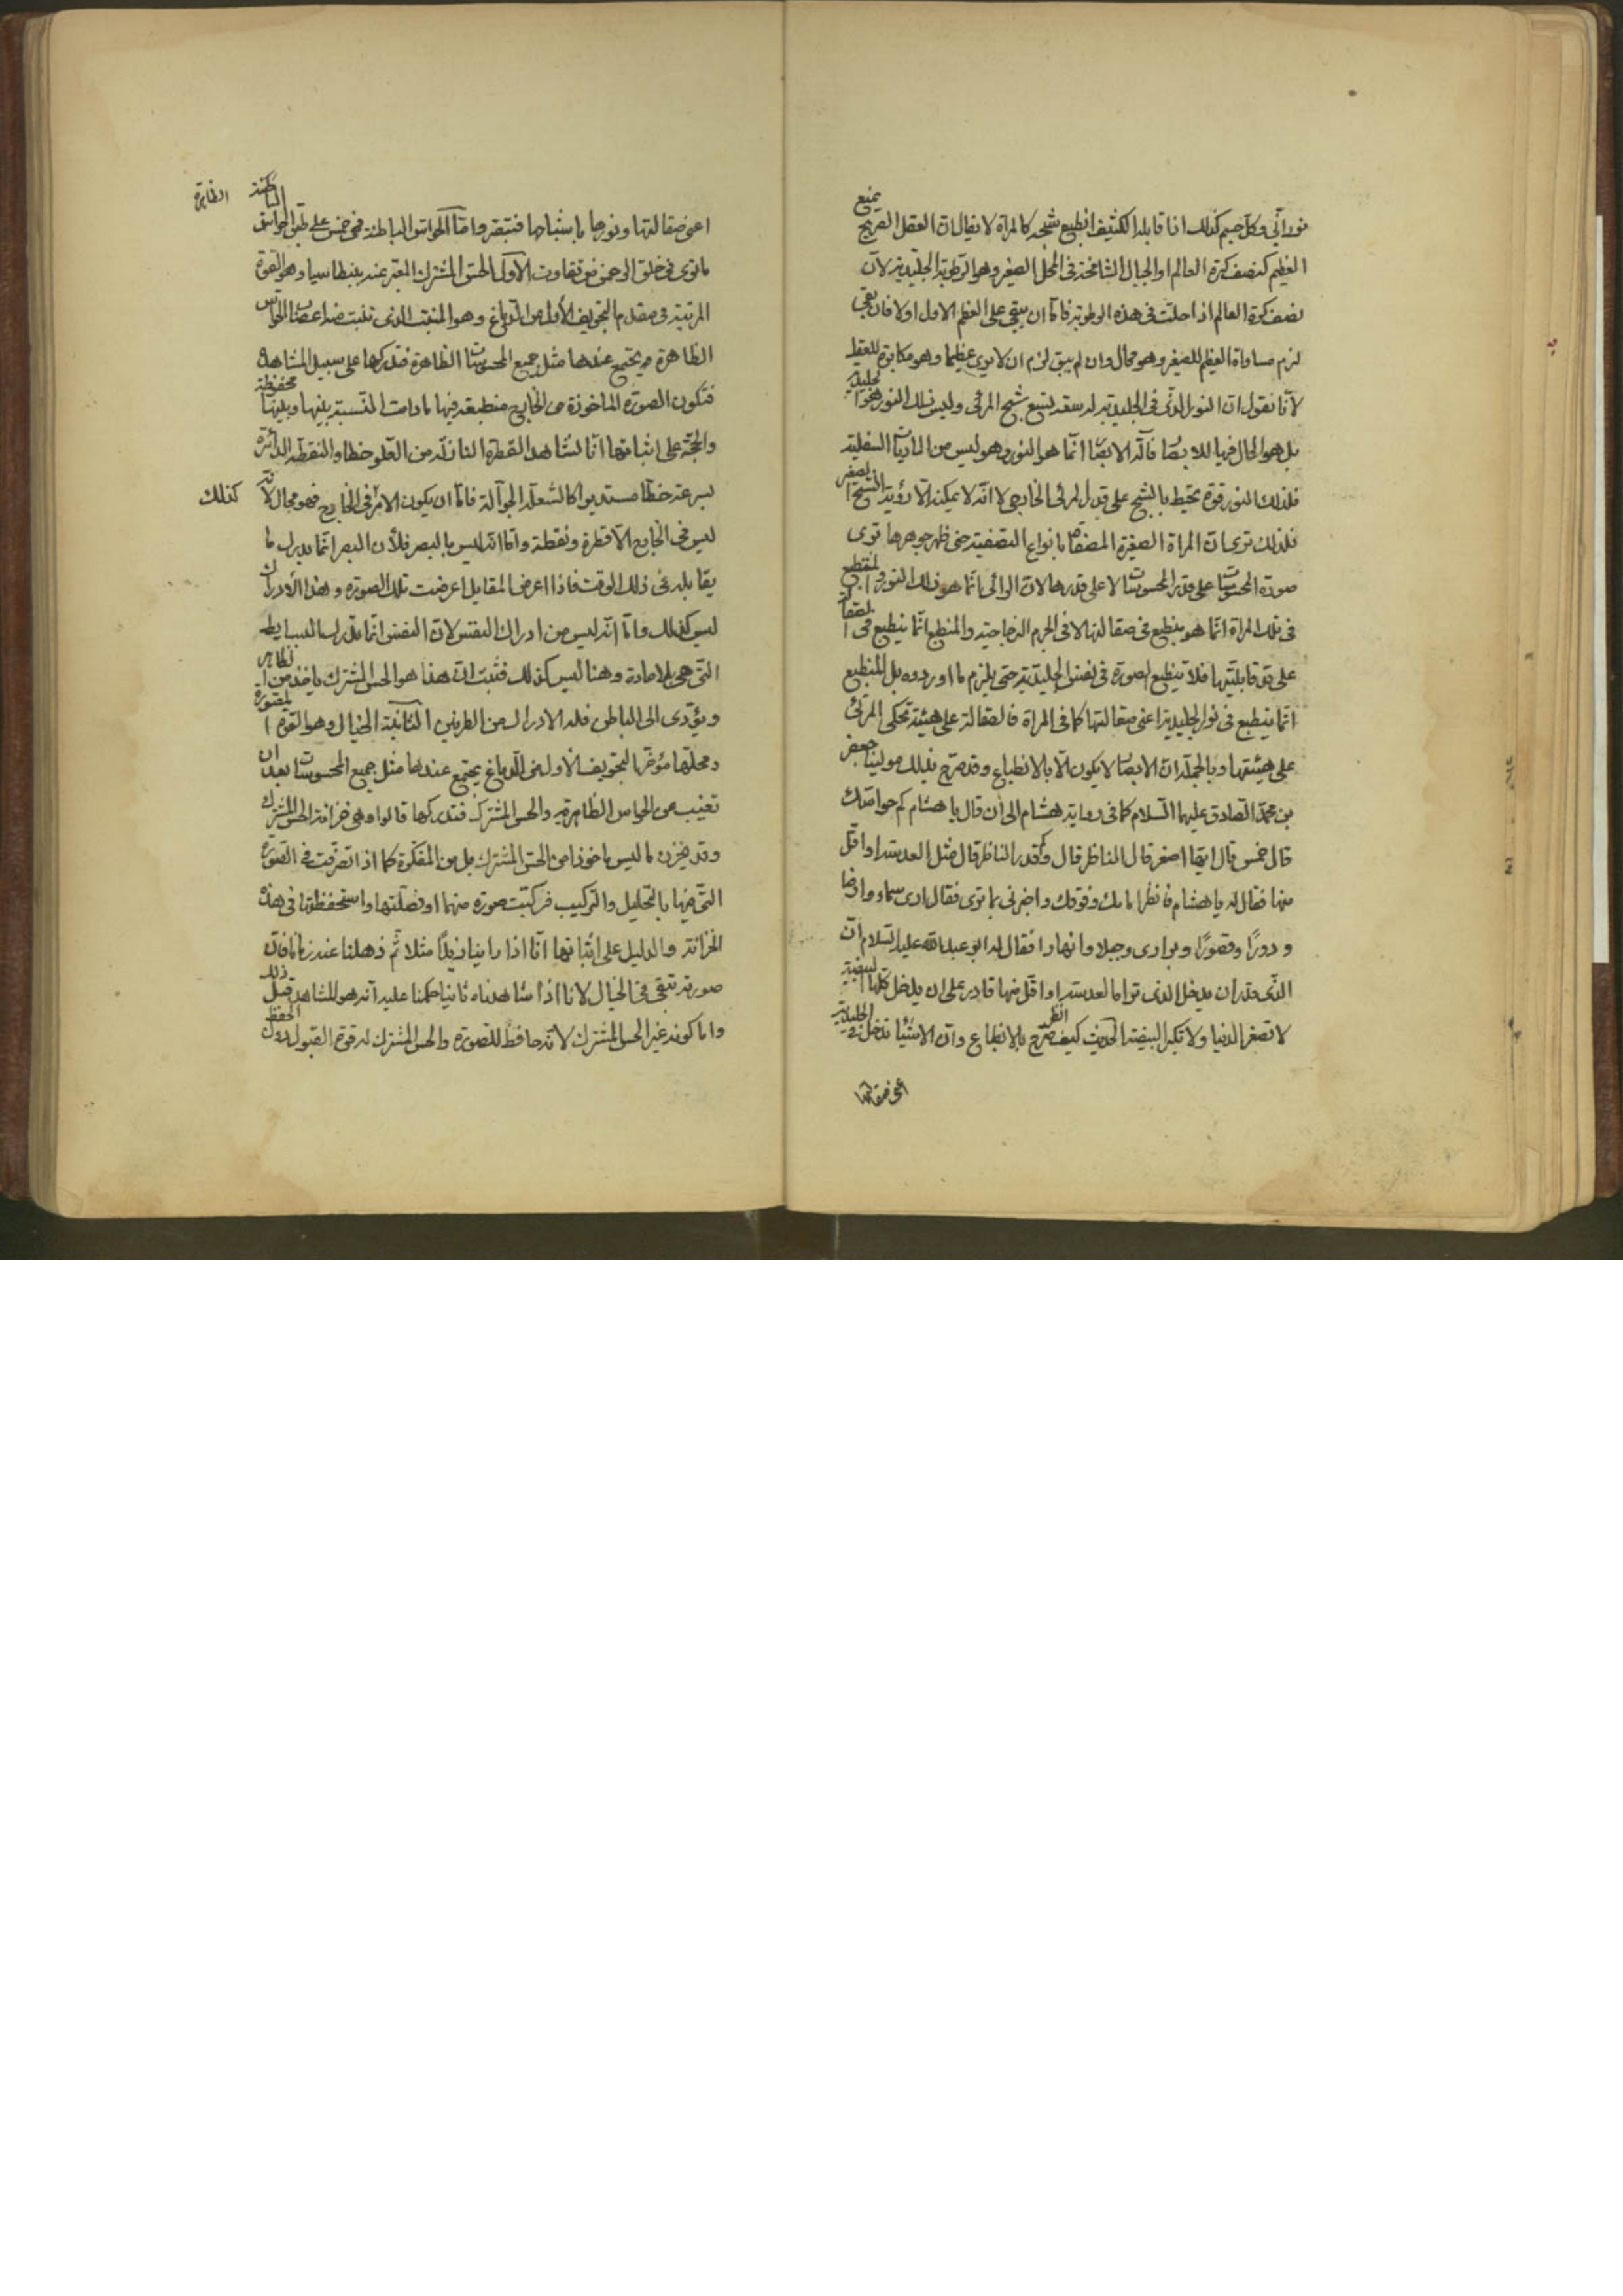 نورانى وكل جسم كذلك اذا قابله الكثيف انطبع شبحه كالمرآة لا يقال ان العقل الصريح يمنع
العظيم كنصف كرة العالم او الجبال الشامخة فى المحل الصغير وهو الرطوبة الجليدية لان
نصف كرة العالم اذا حلت فى هذه الرطوبة فاما ان يبقى على العظم الاول اولا فان بقى
لزم مساواة العظيم للصغير وهو محال وان لم يبق لزم ان لا يرى عظيما وهو مكابرة للعقل
لانا نقول ان النور الذى فى الجليدية له سعة يسع شبح المرئى وليس ذلك النور هو الجليدية
بل هو الحال فيها للابصار فآلة الابصار انما هو النور وهو ليس من الماديات السفلية
فلذلك النور قوة يحيط بالشبح على قدر المرئى الخارجى لا انه لا يمكنه الا رؤية الشبح الصغير
فلذلك ترى ان المراة الصغيرة المصفاة بانواع التصفية حتى ظهر جوهرها ترى
صورة المحسوسات على قدر المحسوسات لا على قدرها لان الرائى انما هو ذلك النور والمنطبع
فى تلك المراة انما هو ينطبع فى صقالتها لا فى الجرم الزجاجية والمنطبع انما ينطبع فى الصقالة
على قدر قابليتها فلا تنطبع الصورة فى نفس الجليدية حتى يلزم ما اوردوه بل المنطبع
انما ينطبع فى نور الجليدية اعنى صقالتها كما فى المراة فالصقالة على هيئة تحكى المرئى
على هيئتها وبالجملة ان الابصار لا يكون الا بالانطباع وقد صرح بذلك مولينا جعفر
بن محمد الصادق عليهما السلام كما فى رواية هشام الى ان قال يا هشام كم حواسك
قال خمس قال ايها اصغر قال الناظر قال وكم قدر الناظر قال مثل العدسة او اقل
منها فقال له يا هشام فانظر امامك وفوقك واخبرنى بما ترى فقال ارى سماء وارضا
ودورًا وقصورًا وبوارى وجبلا وانهارا فقال له ابو عبد الله عليه السلام ان
الذى قدر ان يدخل الذى تراه العدسة او اقل منها قادر على ان يدخل كلها البيضة
لا تصغر الدنيا ولا تكبر البيضة الحديث انظر كيف صرح بالانطباع وان الاشياء تدخل فى الجليدية
اعنى صقالتها
اعنى صقالتها ونورها باشباحها فتبصر واما الحواس الباطنة فهى خمس على طبق الحواس الباطنة
الظاهرة
ما ترى فى خلق الرحمن من تفاوت الاول الحس المشترك المعبر عنه ببنطاسيا وهو القوة
المرتبة فى مقدم التجويف الاول من الدماغ وهو المنبت الذى تنبت منه اعصاب الحواس
الظاهرة يجتمع عندها مثل جميع المحسوسات الظاهرة فتدركها على سبيل المشاهدة
فتكون الصورة الماخوذة من الخارج منطبعة فيها ما دامت النسبة بينها وبينها محفوظة
والحجة على اثباتها انا نشاهد القطرة النازلة من العلو خطا والنقطة الدائرة
بسرعة خطا مستديرا كالشعلة الجوالة فاما ان يكون الامر فى الخارج كذلك فهو محال لانه
ليس فى الخارج الا قطرة ونقطة واما انه ليس بالبصر فلأن البصر انما يدرك ما
يقابله فى ذلك الوقت فاذا اعرض المقابل اعرضت تلك الصورة وهذا الادراك
ليس كذلك واما انه ليس من ادراك النفس لان النفس انما تدرك البسايط
التى هى بلا مادة وهنا ليس كذلك فثبت ان هذا هو الحس المشترك ياخذ من الظاهر
ويؤدى الى الباطن فله الادراك من الطرفين الثانية الخيال وهو القوة المصورة
ومحلها مؤخر التجويف الاول من الدماغ يجتمع عندها مثل جميع المحسوسات بعد ان
تغيب عن الحواس الظاهرة والحس المشترك فتدركها قالوا وهى خزانة الحس المشترك
وقد يخزن ما ليس ماخوذا من الحس المشترك بل من المفكرة كما اذا تصرفت فى الصورة
التى فيها بالتحليل والتركيب فركبت صورة منهما او فصلتها واستحفظتها فى هذه
الخزانة والدليل على اثباتها انا اذا راينا زيدًا مثلا ثم ذهلنا عنه زمانا فان
صورته تبقى فى الخيال لانا اذا شاهدناه ثانيا حكمنا عليه انه هو المشاهد قبل ذلك
واما كونه غير الحس المشترك لانه حافظ للصورة والحس المشترك له قوة القبول دون الحفظ